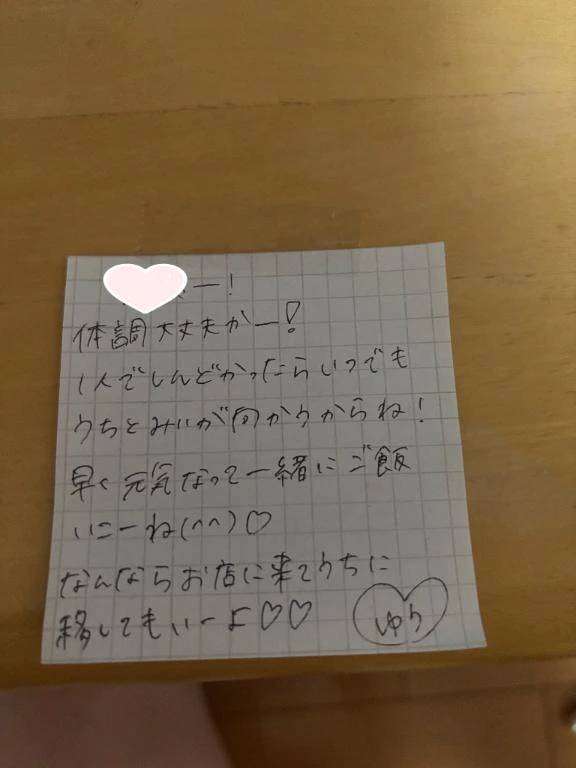 ー!
体調大丈夫かー!
1人でしんどかったらいつでも
うちとみいが向かうからね!
早く元気なって一緒にご飯
いこーね(^^)♡
なんならお店に来てうちに
移してもいーよ♡♡
ゆう